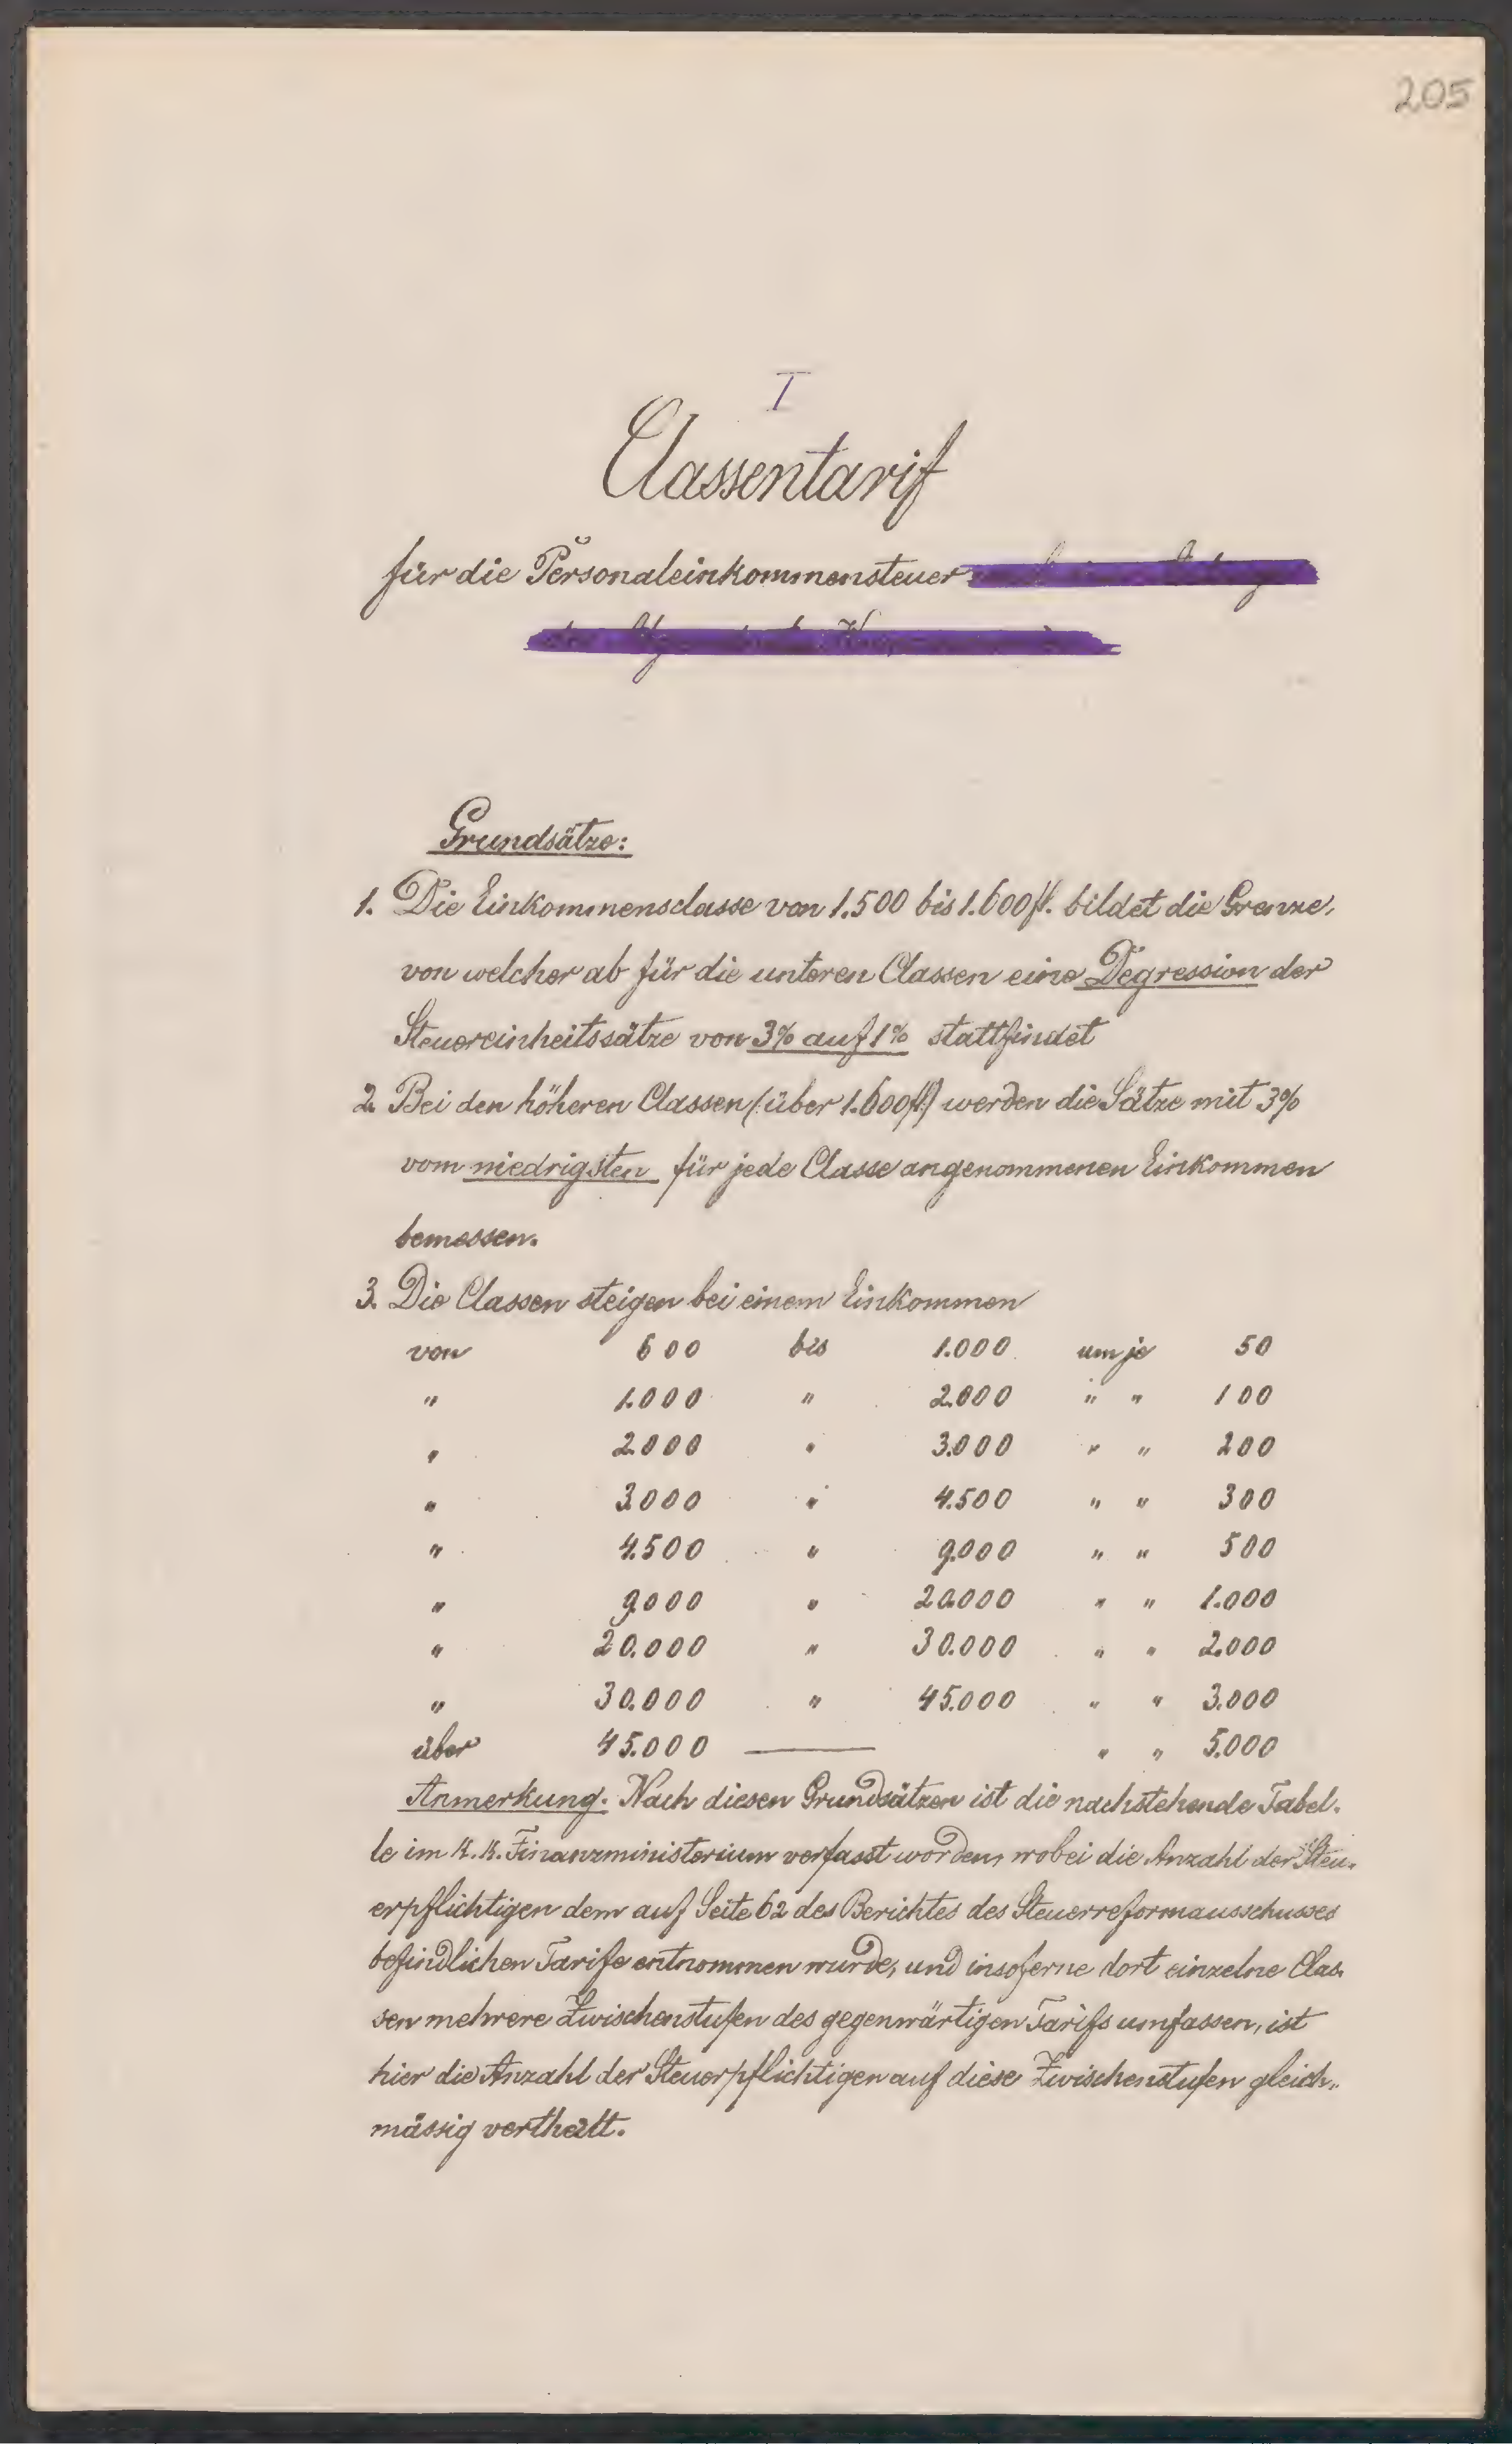 205
I
Classentarif
für die Personaleinkommensteuer
Grundsätze:
1. Die Einkommensclasse von 1.500 bis 1.600 fl. bildet die Grenze,
von welcher ab für die unteren Classen eine Degression der
Steuereinheitssätze von 3% auf 1% stattfindet
2. Bei den höheren Classen (über 1.600 fl) werden die Sätze mit 3%
vom niedrigsten für jede Classe angenommenen Einkommen
bemessen.
3. Die Classen steigen bei einem Einkommen
von 600 bis 1.000 um je 50
" 1.000 " 2.000 " " 100
" 2.000 " 3.000 " " 200
" 3.000 " 4.500 " " 300
" 4.500 " 9.000 " " 500
" 9.000 " 20.000 " " 1.000
" 20.000 " 30.000 " " 2.000
" 30.000 " 45.000 " " 3.000
über 45.000 — " " 5.000
Anmerkung. Nach diesen Grundsätzen ist die nachstehende Tabel-
le im K. K. Finanzministerium verfasst worden, wobei die Anzahl der Steu-
erpflichtigen dem auf Seite 62 des Berichtes des Steuerreformausschusses
befindlichen Tarife entnommen wurde, und insoferne dort einzelne Clas-
sen mehrere Zwischenstufen des gegenwärtigen Tarifs umfassen, ist
hier die Anzahl der Steuerpflichtigen auf diese Zwischenstufen gleich-
mässig vertheilt.